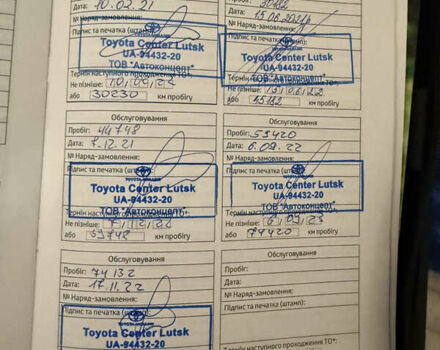 10.02.21
№ Наряд-замовлення:
Підпис та печатка (штамп):
Toyota Center Lutsk
UA-94432-20
ТОВ "Автоконцепт"
Термін наступного проходження ТО*:
Не пізніше:
або 30230 км пробігу
15.06.21
№ Наряд-замовлення:
Підпис та печатка (штамп):
Toyota Center Lutsk
UA-94432-20
ТОВ "Автоконцепт"
Не пізніше: 15 06 22
або 45132 км пробігу
Обслуговування
Пробіг: 44748
Дата: 7.12.21
№ Наряд-замовлення:
Підпис та печатка (штамп):
Toyota Center Lutsk
UA-94432-20
ТОВ "Автоконцепт"
Термін наступного проходження ТО*:
Не пізніше: 7 12 22
або 59748 км пробігу
Обслуговування
Пробіг: 59420
Дата: 6.09.22
№ Наряд-замовлення:
Підпис та печатка (штамп):
Toyota Center Lutsk
UA-94432-20
ТОВ "Автоконцепт"
Не пізніше: 6 09 23
або 74420 км пробігу
Обслуговування
Пробіг: 74132
Дата: 17.11.22
№ Наряд-замовлення:
Підпис та печатка (штамп):
Toyota Center Lutsk
UA-94432-20
Обслуговування
Пробіг:
Дата:
№ Наряд-замовлення:
Підпис та печатка (штамп):
Термін наступного проходження ТО*: